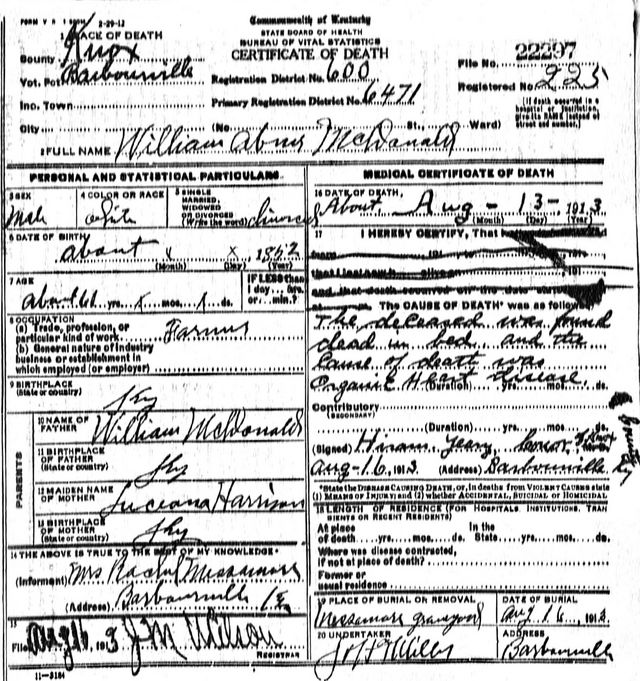 FORM V S 1 2-29-12
Commonwealth of Kentucky
STATE BOARD OF HEALTH
BUREAU OF VITAL STATISTICS
CERTIFICATE OF DEATH
1 PLACE OF DEATH
County Knox
Vot. Pct. Barbourville
Inc. Town
City (No. St., Ward)
Registration District No. 600
Primary Registration District No. 6471
File No. 22297
Registered No. 225
(If death occurred in a hospital or institution, give its NAME instead of street and number.)
2 FULL NAME William Abner McDonald
PERSONAL AND STATISTICAL PARTICULARS
3 SEX Male
4 COLOR OR RACE White
5 SINGLE MARRIED, WIDOWED OR DIVORCED (Write the word) divorced
6 DATE OF BIRTH
about x x 1852
(Month) (Day) (Year)
7 AGE
about 61 yrs. x mos. x ds.
IF LESS than 1 day, hrs. or min.?
8 OCCUPATION
(a) Trade, profession, or particular kind of work Farmer
(b) General nature of industry business or establishment in which employed (or employer)
9 BIRTHPLACE (State or country) Ky
PARENTS
10 NAME OF FATHER William McDonald
11 BIRTHPLACE OF FATHER (State or country) Ky
12 MAIDEN NAME OF MOTHER Luceana Harrison
13 BIRTHPLACE OF MOTHER (State or country) Ky
14 THE ABOVE IS TRUE TO THE BEST OF MY KNOWLEDGE
(Informant) Mrs Rachel Messamore
(Address) Barbourville Ky
15
Filed Aug 16 1913 J M Wilson
REGISTRAR
11-3184
MEDICAL CERTIFICATE OF DEATH
16 DATE OF DEATH,
About Aug - 13 - 1913
(Month) (Day) (Year)
17 I HEREBY CERTIFY, That
from 191 to 191
that I last saw alive on 191
and that death occurred on the date stated
at m. The CAUSE OF DEATH* was as follows:
The deceased was found
dead in bed and the
Cause of death was
Organic Heart disease
(Duration) yrs. mos. ds.
Contributory
(SECONDARY)
(Duration) yrs. mos. ds.
(Signed) Hiram Yeary Coroner Knox County
Aug - 16, 1913 (Address) Barbourville Ky
*State the DISEASE CAUSING DEATH, or, in deaths from VIOLENT CAUSES state (1) MEANS OF INJURY; and (2) whether ACCIDENTAL, SUICIDAL or HOMICIDAL
18 LENGTH OF RESIDENCE (FOR HOSPITALS, INSTITUTIONS, TRANSIENTS OR RECENT RESIDENTS)
At place of death yrs. mos. ds. In the State yrs. mos. ds.
Where was disease contracted, if not at place of death?
Former or usual residence
19 PLACE OF BURIAL OR REMOVAL
Messamore graveyard
DATE OF BURIAL
Aug 16, 1913
20 UNDERTAKER
Miller
ADDRESS
Barbourville